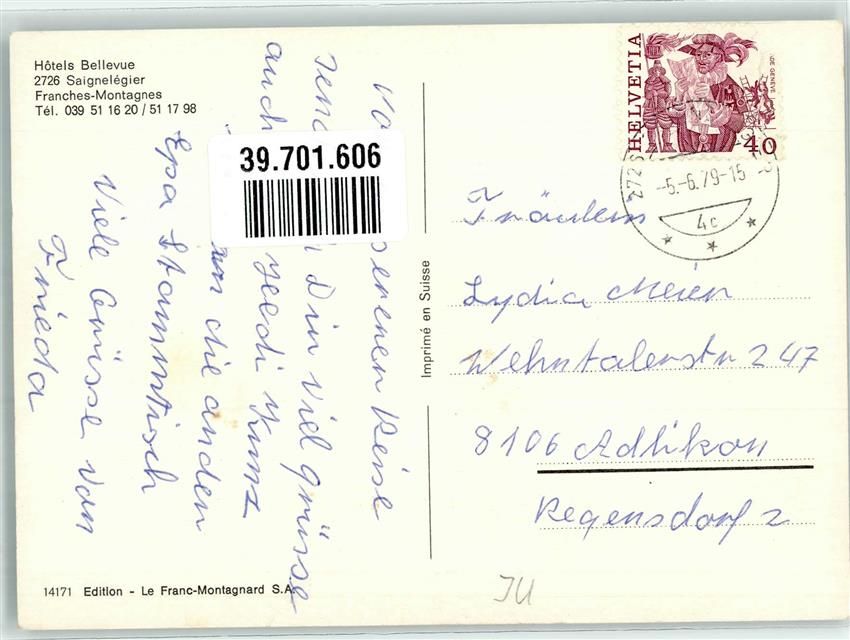 Hôtels Bellevue
2726 Saignelégier
Franches-Montagnes
Tél. 039 51 16 20 / 51 17 98
39.701.606
Reise
Dir viel grüsse
auch Kunz
die anden
Epa Stammtisch
Viele Grüsse von
Frieda
Imprimé en Suisse
HELVETIA
40
-5.-6.79-15
4c
Fräulein
Lydia Meier
Wehntalerstr 247
8106 Adlikon
Regensdorf 2
14171 Edition - Le Franc-Montagnard S.A.